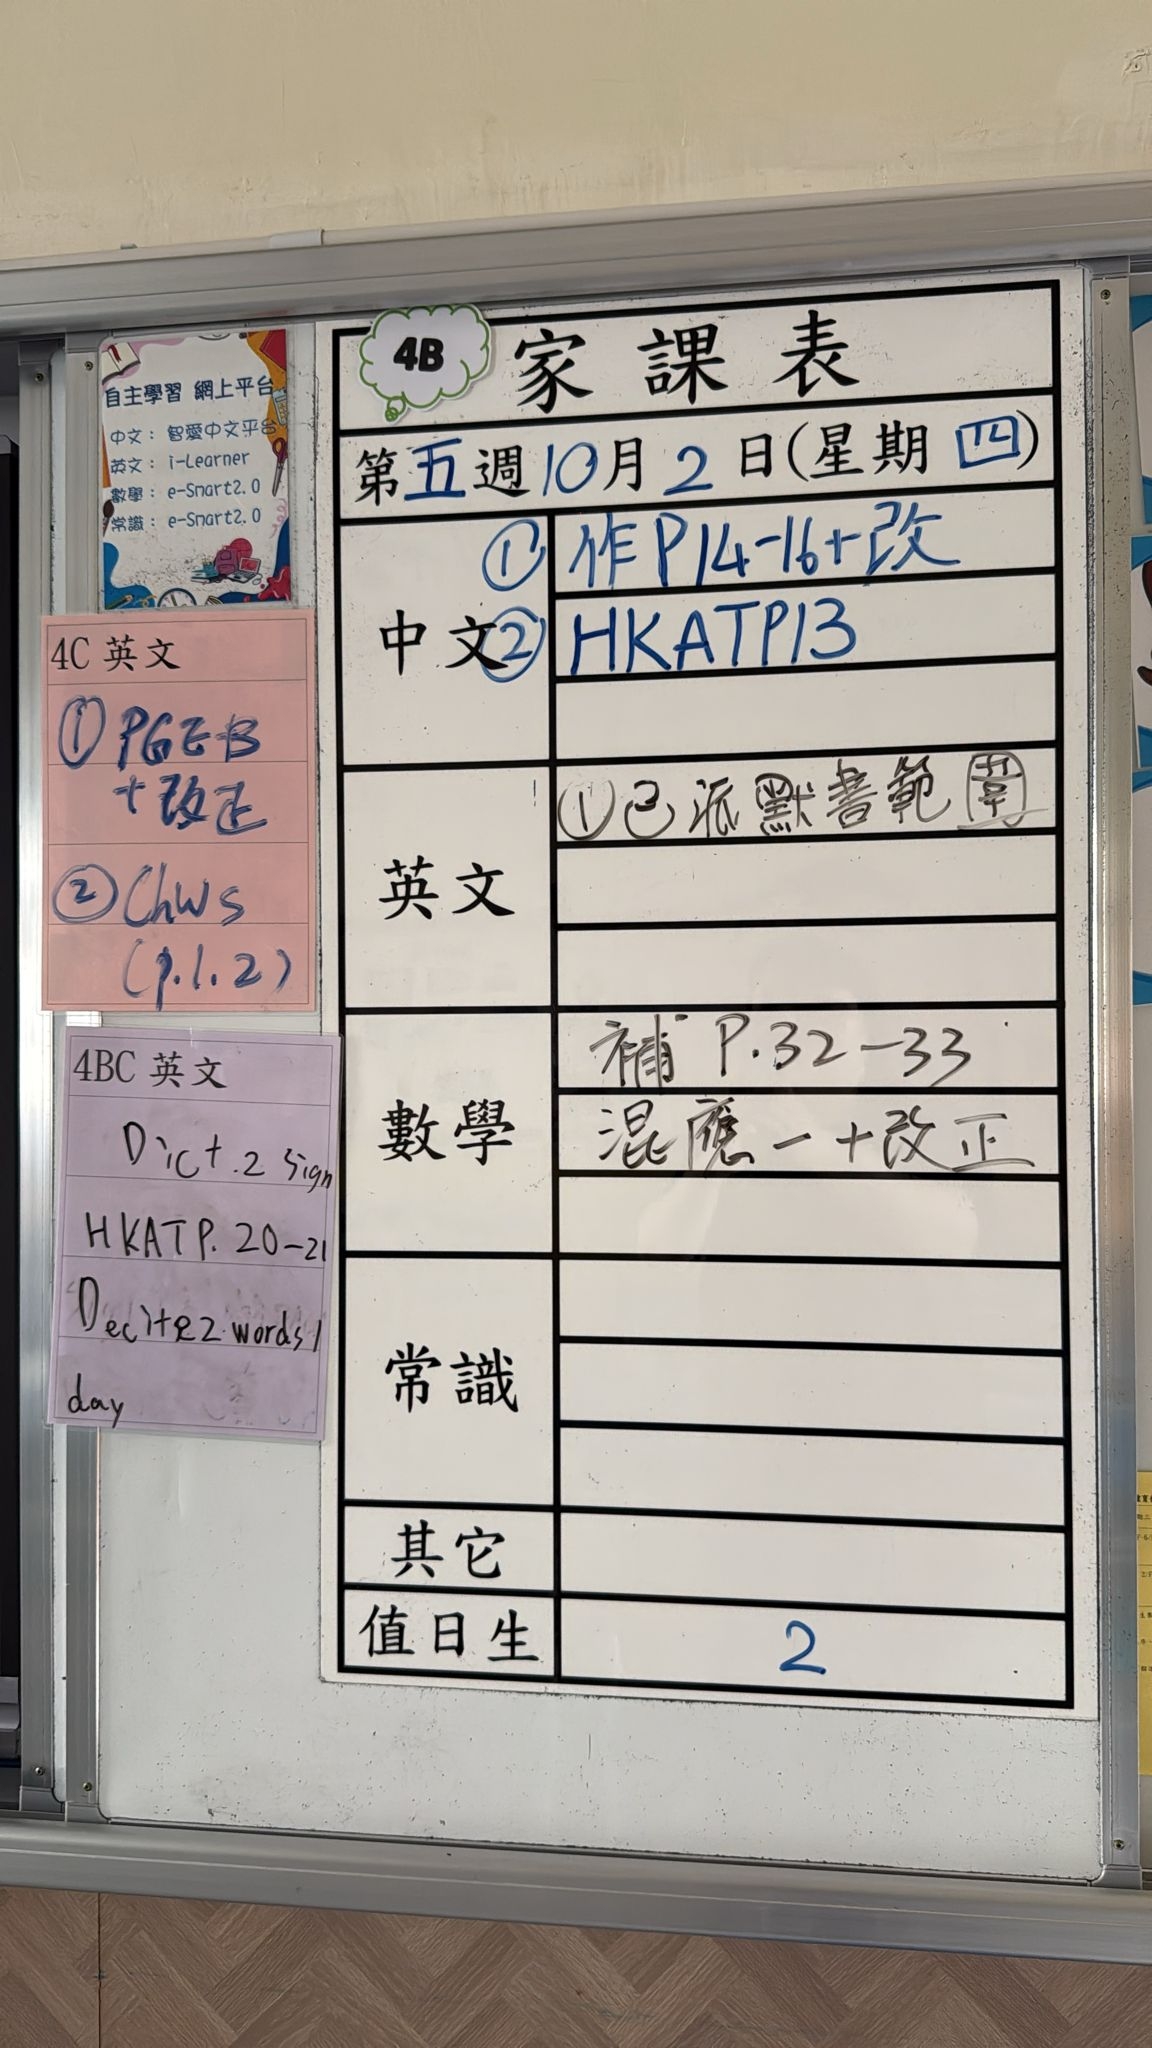 4B 家課表
第五週10月2日(星期四)
中文
① 作P14-16+改
② HKATP13
英文
① 已派默書範圍
數學
補 P.32-33
混應一+改正
常識
其它
值日生
2
自主學習 網上平台
中文: 智愛中文平台
英文: i-Learner
數學: e-Smart2.0
常識: e-Smart2.0
4C 英文
① PGEB
+改正
② Chws
(p.1.2)
4BC 英文
Dict.2 sign
HKATP.20-21
Decite2 words/
day